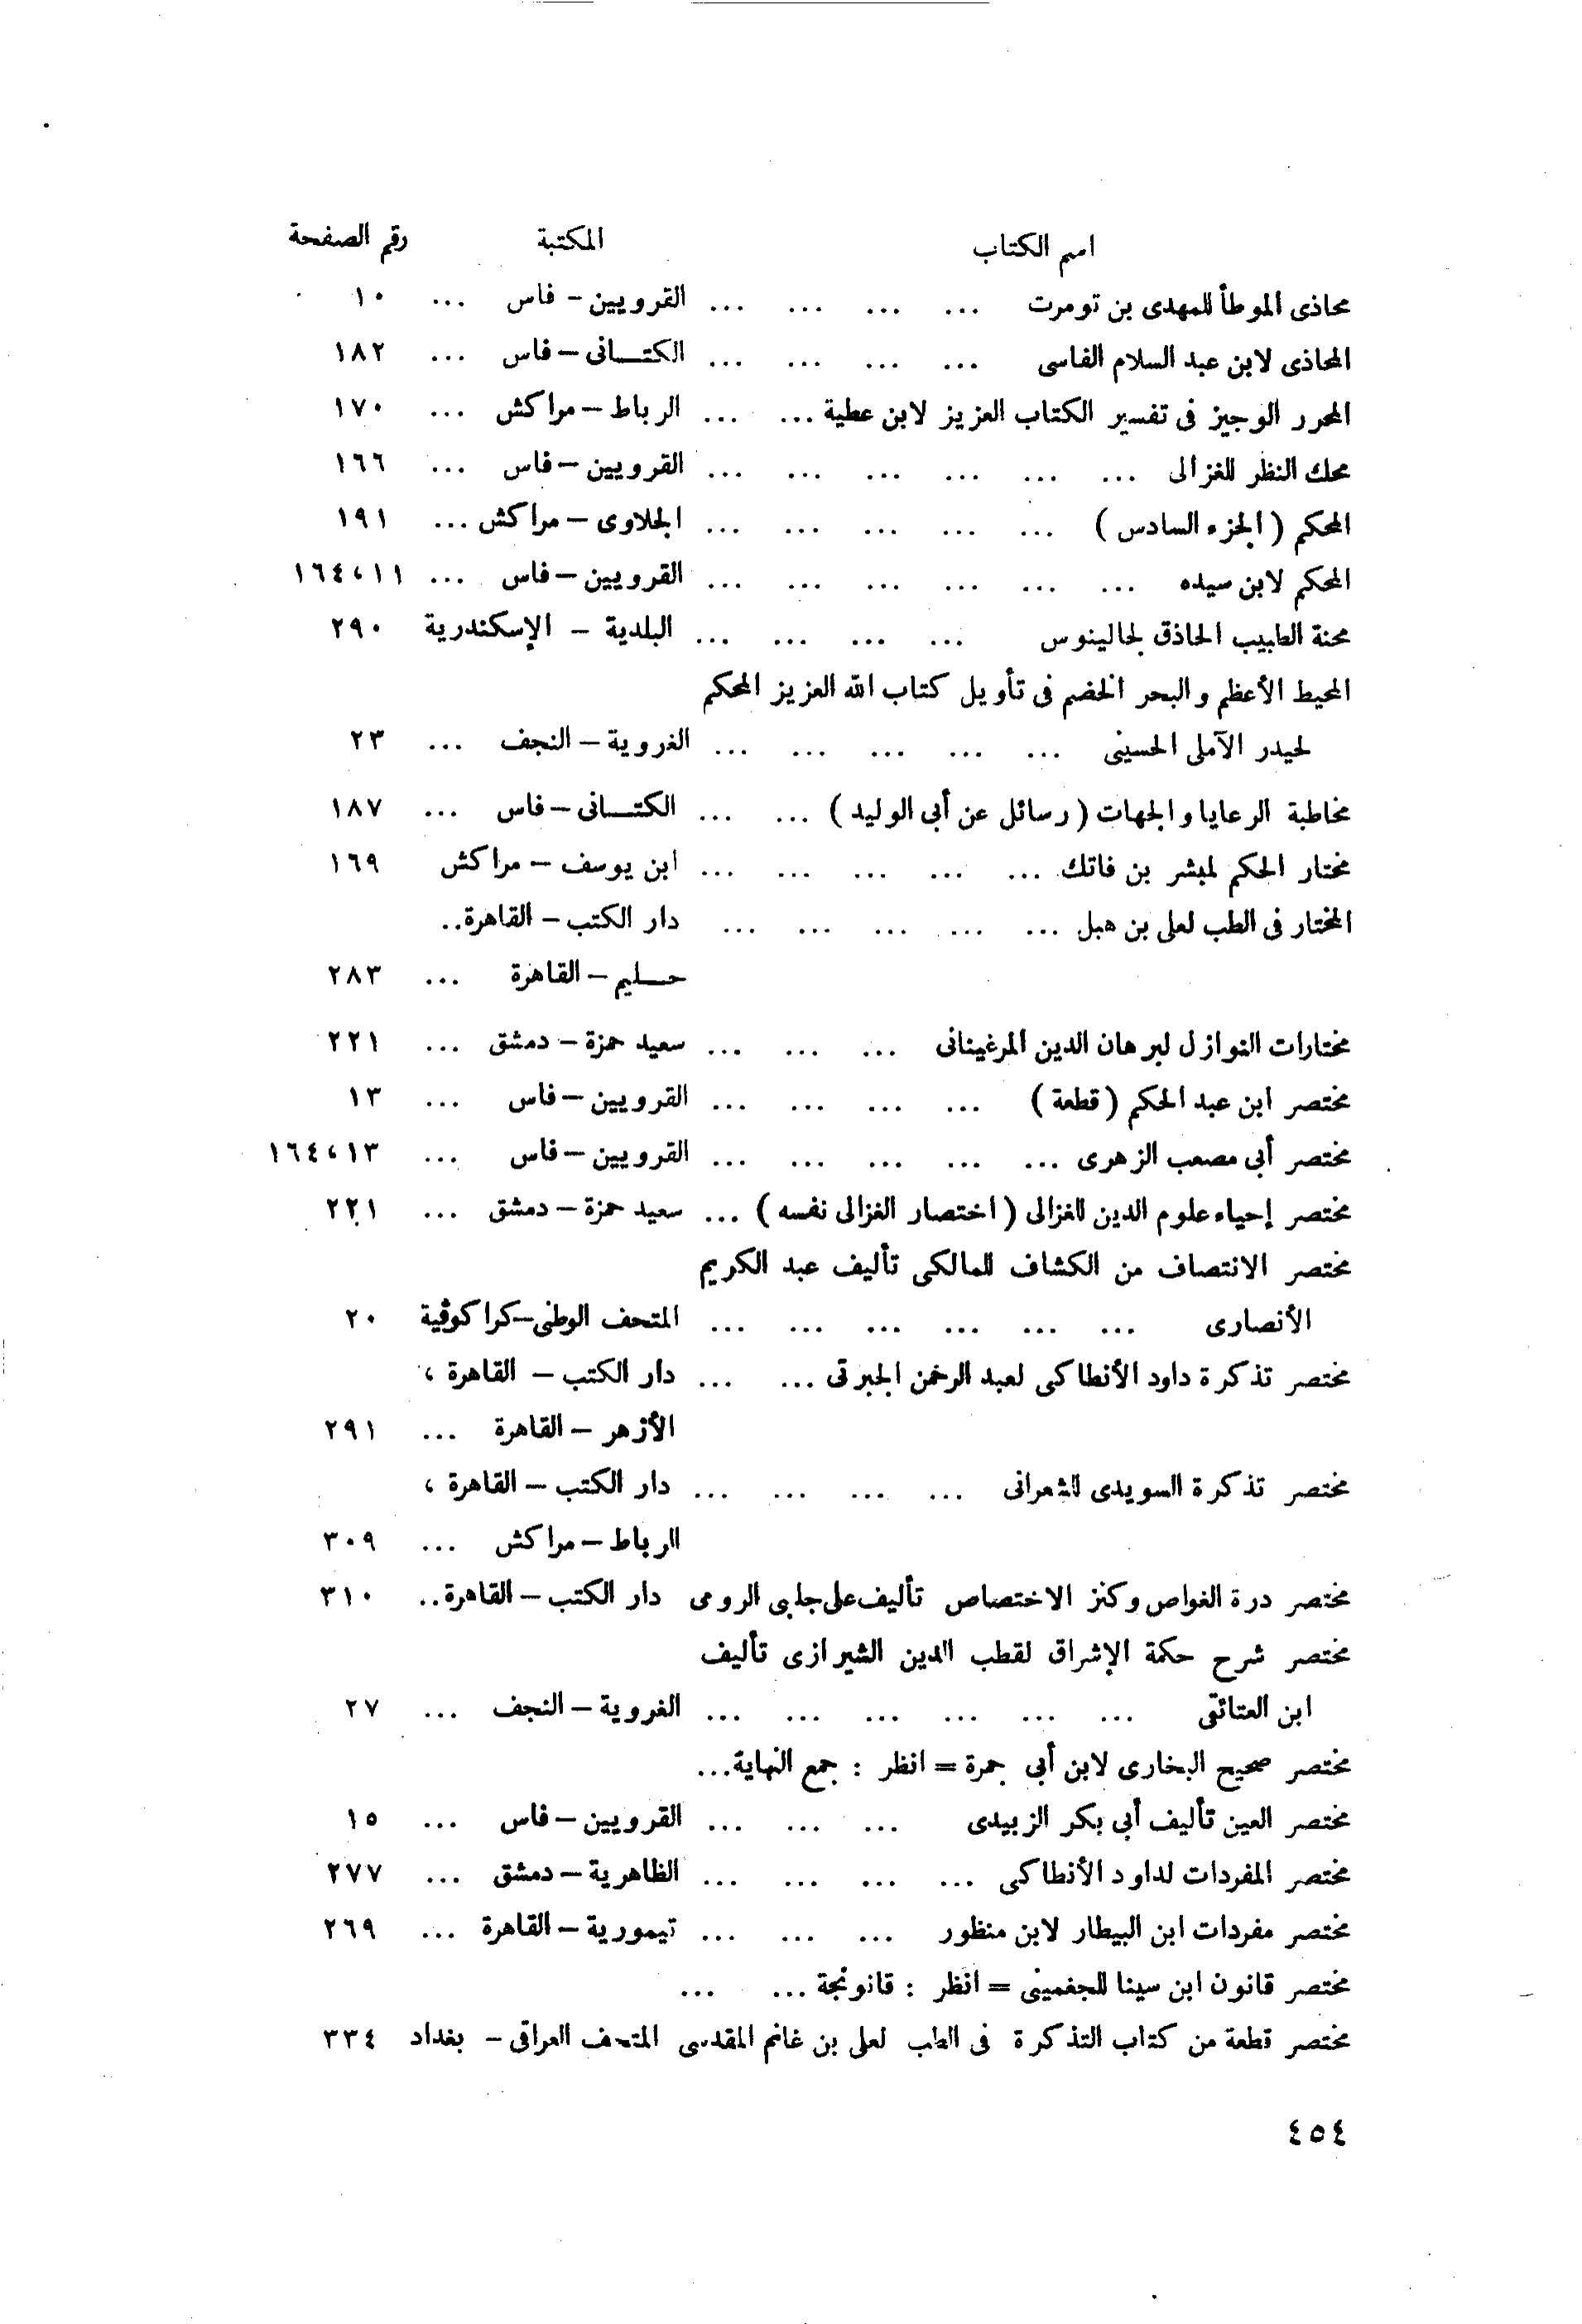 اسم الكتاب المكتبة رقم الصفحة
محاذى الموطأ للمهدى بن تومرت ... ... ... ... القرويين – فاس ... ١٠
المحاذى لابن عبد السلام الفاسى ... ... ... ... الكتــانى – فاس ... ١٨٢
المحرر الوجيز فى تفسير الكتاب العزيز لابن عطية ... ... الرباط – مراكش ... ١٧٠
محك النظر للغزالى ... ... ... ... ... ... القرويين – فاس ... ١٦٦
المحكم ( الجزء السادس ) ... ... ... ... ... الجلاوى – مراكش ... ١٩١
المحكم لابن سيده ... ... ... ... ... ... القرويين – فاس ... ١١ ، ١٦٤
محنة الطبيب الحاذق لجالينوس ... ... ... ... البلدية – الإسكندرية ٢٩٠
المحيط الأعظم والبحر الخضم فى تأويل كتاب الله العزيز المحكم
لحيدر الآملى الحسينى ... ... ... ... ... الغروية – النجف ... ٢٣
مخاطبة الرعايا والجهات ( رسائل عن أبى الوليد ) ... ... الكتــانى – فاس ... ١٨٧
مختار الحكم لمبشر بن فاتك ... ... ... ... ... ابن يوسف – مراكش ١٦٩
المختار فى الطب لعلى بن هبل ... ... ... ... ... دار الكتب – القاهرة ..
حــليم – القاهرة ... ٢٨٣
مختارات النوازل لبرهان الدين المرغينانى ... ... ... سعيد حمزة – دمشق ... ٢٢١
مختصر ابن عبد الحكم ( قطعة ) ... ... ... ... القرويين – فاس ... ١٣
مختصر أبى مصعب الزهرى ... ... ... ... ... القرويين – فاس ... ١٣ ، ١٦٤
مختصر إحياء علوم الدين للغزالى ( اختصار الغزالى نفسه ) ... سعيد حمزة – دمشق ... ٢٢١
مختصر الانتصاف من الكشاف للمالكى تأليف عبد الكريم
الأنصارى ... ... ... ... ... ... المتحف الوطنى – كراكوڤية ٢٠
مختصر تذكرة داود الأنطاكى لعبد الرحمن الجبرتى ... ... دار الكتب – القاهرة ،
الأزهر – القاهرة ... ٢٩١
مختصر تذكرة السويدى للشعرانى ... ... ... ... دار الكتب – القاهرة ،
الرباط – مراكش ... ٣٠٩
مختصر درة الغواص وكنز الاختصاص تأليف على جلبى الرومى دار الكتب – القاهرة .. ٣١٠
مختصر شرح حكمة الإشراق لقطب الدين الشيرازى تأليف
ابن العتائقى ... ... ... ... ... ... الغروية – النجف ... ٢٧
مختصر صحيح البخارى لابن أبى جمرة = انظر : جمع النهاية ...
مختصر العين تأليف أبى بكر الزبيدى ... ... ... القرويين – فاس ... ١٥
مختصر المفردات لداود الأنطاكى ... ... ... ... الظاهرية – دمشق ... ٢٧٧
مختصر مفردات ابن البيطار لابن منظور ... ... ... تيمورية – القاهرة ... ٢٦٩
مختصر قانون ابن سينا للجغمينى = انظر : قانونجة ... ...
مختصر قطعة من كتاب التذكرة فى الطب لعلى بن غانم المقدسى المتحف العراقى – بغداد ٣٣٤
٤٥٤